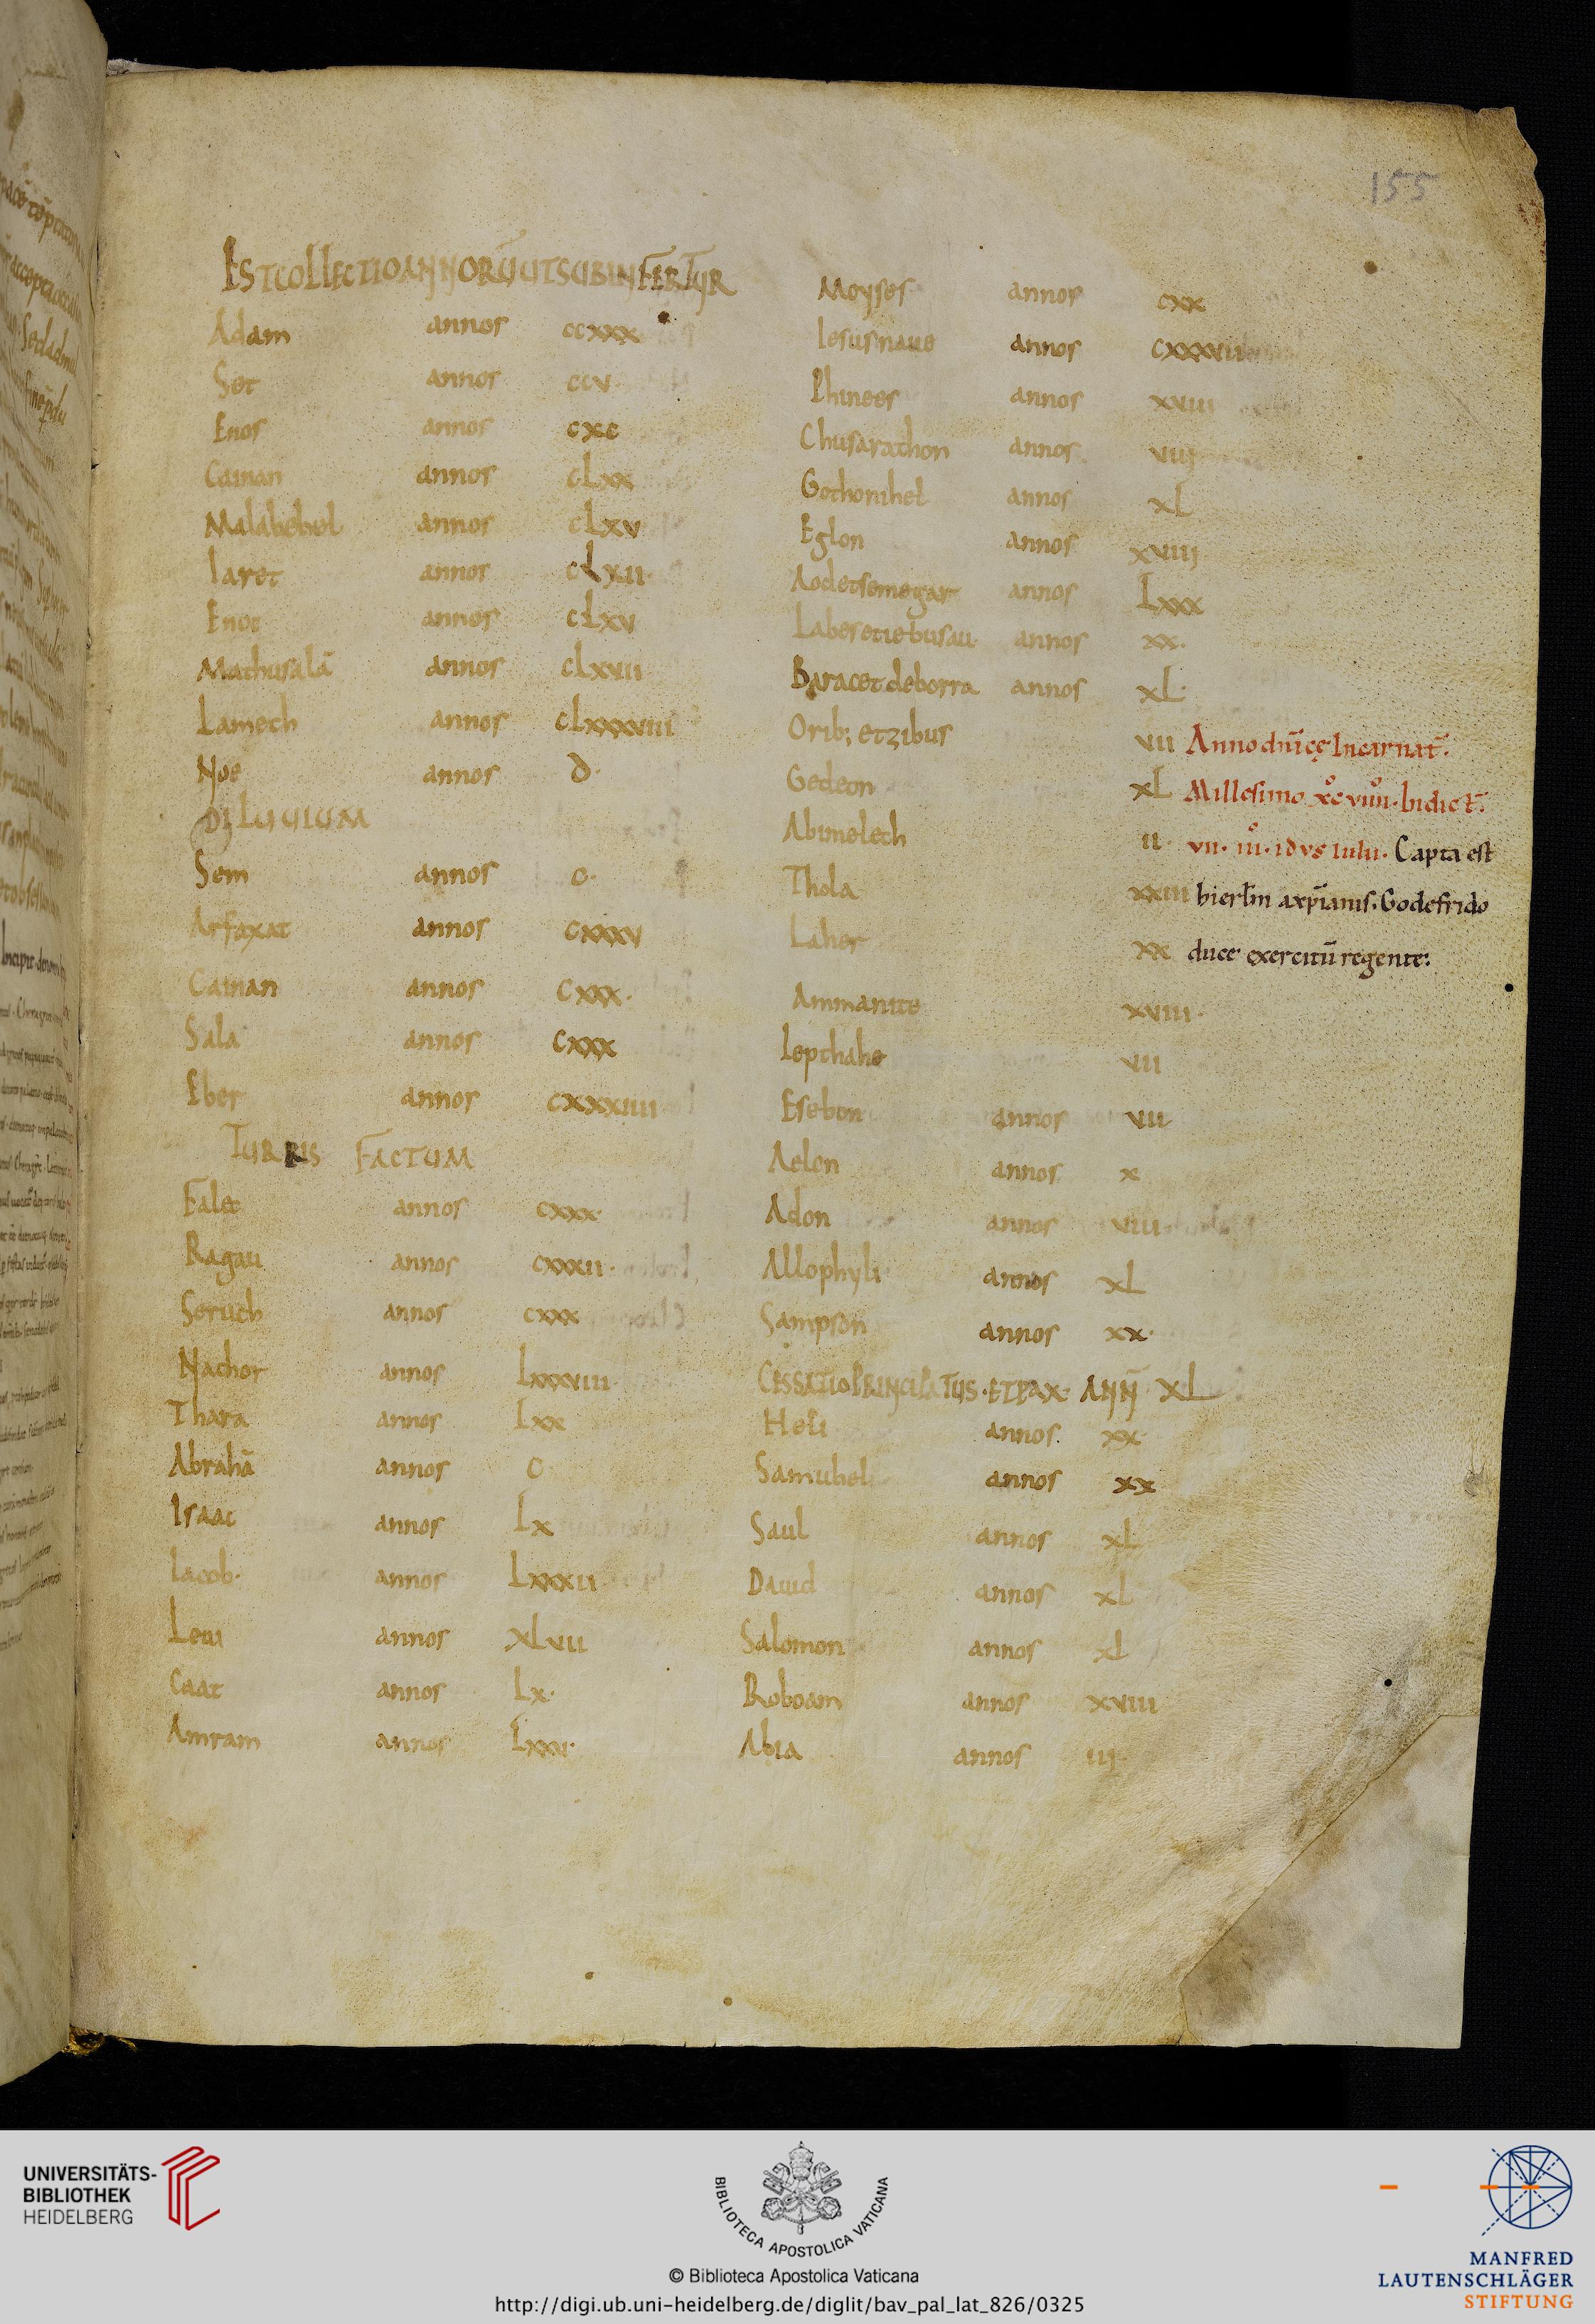 155
EST COLLECTIO ANNORŪ UT SUBINFERTUR
Adam annos ccxxx
Set annos ccv
Enos annos cxc
Cainan annos cLxx
Malalehel annos cLxv
Iaret annos cLxii
Enoc annos cLxv
Mathusalā annos cLxvii
Lamech annos cLxxxviii
Noe annos d
DILUUIUM
Sem annos c
Arfaxat annos cxxxv
Cainan annos cxxx
Sala annos cxxx
Eber annos cxxxiiii
TURRIS FACTUM
Falec annos cxxx
Ragau annos cxxxii
Seruch annos cxxx
Nachor annos Lxxxviii
Thara annos Lxx
Abrahā annos c
Isaac annos Lx
Iacob annos Lxxxii
Leui annos XLvii
Caat annos Lx
Amram annos Lxxv
Moyses annos cxx
Iesus naue annos cxxxvii
Phinees annos xxiii
Chusarathon annos viii
Gothonihel annos xL
Eglon annos xviii
Aod et semegar annos Lxxx
Iabes et iebusau annos xx
Barac et deborra annos xL
Orib; et zibus vii
Gedeon xL
Abimelech ii
Thola xxiii
Laher xx
Ammanite xviii
Iepthahe vii
Esebon annos vii
Aelon annos x
Adon annos viii
Allophyli annos xL
Sampson annos xx
CESSATIO PRINCIPATUS · ET PAX · ANÑ XL
Heli annos xx
Samuhel annos xx
Saul annos xL
Dauid annos xL
Salomon annos xL
Roboam annos xviii
Abia annos iii
Anno dn̄icę Incarnat̄.
Millesimo xc° viiii° · Indict̄.
vii · iii° · idus Iulii · Capta est
hierl̄m a xp̄ianis · Godefrido
duce exercitū regente:
UNIVERSITÄTS-
BIBLIOTHEK
HEIDELBERG
BIBLIOTECA APOSTOLICA VATICANA
© Biblioteca Apostolica Vaticana
http://digi.ub.uni-heidelberg.de/diglit/bav_pal_lat_826/0325
MANFRED
LAUTENSCHLÄGER
STIFTUNG